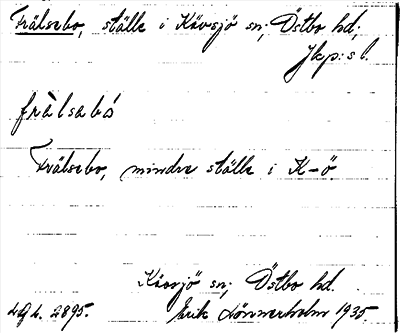 Frälsebo, ställe i Kävsjö sn, Östbo hd,
Jkp:s l.
frälsabó
Frälsebo, mindre ställe i K-ö.
Kävsjö sn; Östbo hd.
Erik Lönnerholm 1935.